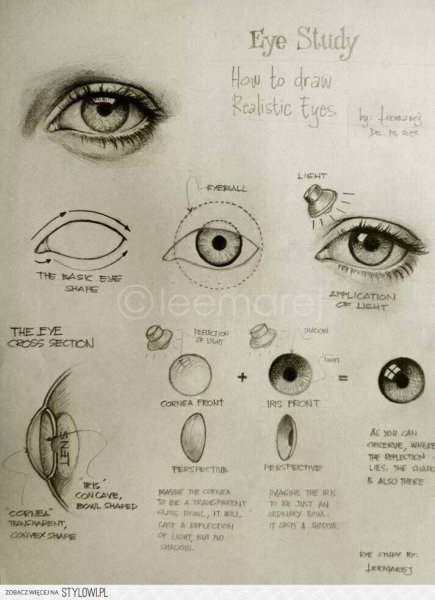 Eye Study
How to draw
Realistic Eyes
by: leemarej
Dec. 19, 2013
EYEBALL
LIGHT
THE BASIC EYE
SHAPE
APPLICATION
OF LIGHT
© leemarej
THE EYE
CROSS SECTION
REFLECTION
OF LIGHT
SHADOW
LIGHT
+
=
CORNEA FRONT
IRIS FRONT
LENS
"IRIS"
CONCAVE,
BOWL SHAPED
"CORNEA"
TRANSPARENT,
CONVEX SHAPE
PERSPECTIVE
PERSPECTIVE
IMAGINE THE CORNEA
TO BE A TRANSPARENT
GLASS BOWL, IT WILL
CAST A REFLECTION
OF LIGHT, BUT NO
SHADOW.
IMAGINE THE IRIS
TO BE JUST AN
ORDINARY BOWL.
IT CASTS A SHADOW.
AS YOU CAN
OBSERVE, WHERE
THE REFLECTION
LIES, THE SHADOW
IS ALSO THERE
EYE STUDY BY:
LEEMAREJ
ZOBACZ WIĘCEJ NA STYLOWI.PL